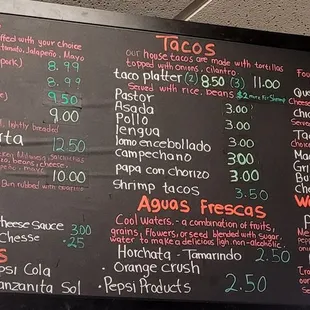 uffed with your choice
tomato, Jalapeño, Mayo
pork)
8.99
8.99
9.50
9.00
l, lightly breaded
rta 12.50
beans, cheese,
peño, mayo 10.00
Bun rubbed with
Cheese Sauce 3.00
Chesse .25
s
psi Cola
anzanita Sol
Tacos
Our house tacos are made with tortillas
topped with onions, cilantro
taco platter (2) 8.50 (3) 11.00
Served with rice, beans $2 more For Shrimp
Pastor
Asada 3.00
Pollo 3.00
lengua 3.00
lomo encebollado 3.00
campechano 300
papa con chorizo 3.00
Shrimp tacos 3.50
Aguas Frescas
Cool Waters - a combination of fruits,
grains, Flowers, or seed blended with sugar,
water to make a delicious ligh, non-alcoholic.
Horchata - Tamarindo 2.50
· Orange Crush
· Pepsi Products 2.50